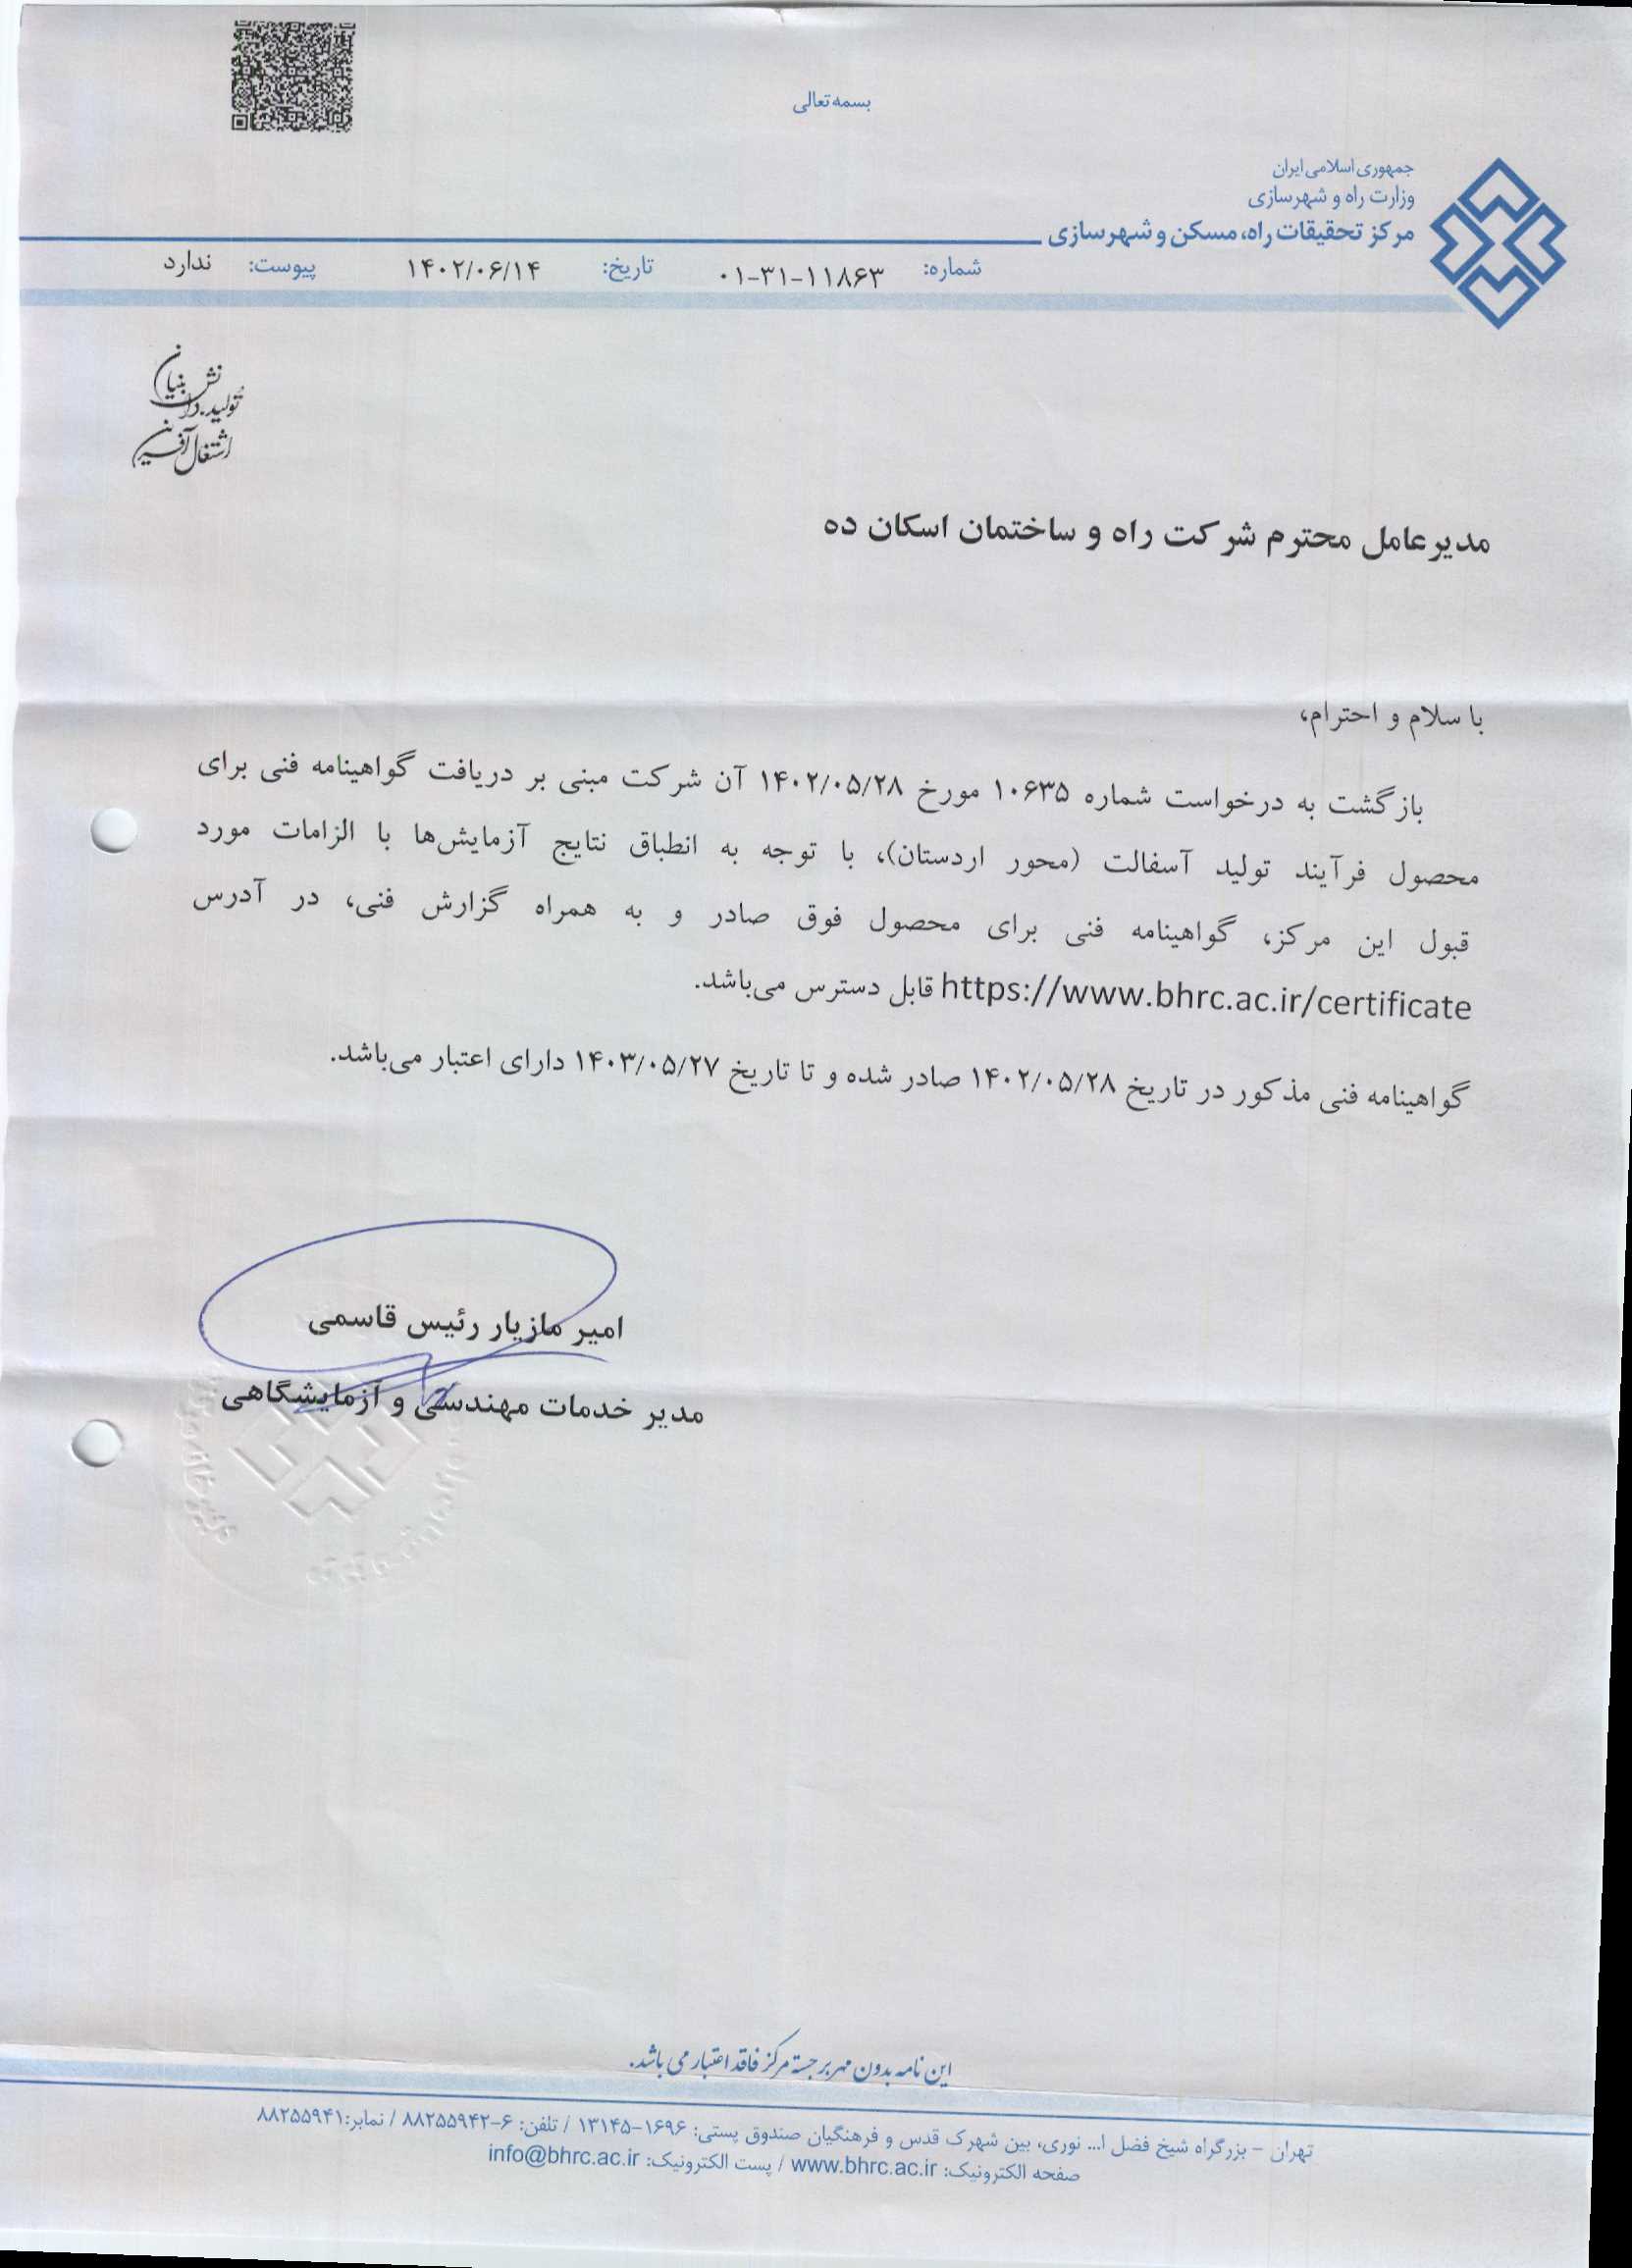 بسمه تعالی
جمهوری اسلامی ایران
وزارت راه و شهرسازی
مرکز تحقیقات راه، مسکن و شهرسازی
شماره: ۰۱-۳۱-۱۱۸۶۳ تاریخ: ۱۴۰۲/۰۶/۱۴ پیوست: ندارد
تولید، دانش بنیان
اشتغال آفرین
مدیرعامل محترم شرکت راه و ساختمان اسکان ده
با سلام و احترام،
بازگشت به درخواست شماره ۱۰۶۳۵ مورخ ۱۴۰۲/۰۵/۲۸ آن شرکت مبنی بر دریافت گواهینامه فنی برای
محصول فرآیند تولید آسفالت (محور اردستان)، با توجه به انطباق نتایج آزمایش‌ها با الزامات مورد
قبول این مرکز، گواهینامه فنی برای محصول فوق صادر و به همراه گزارش فنی، در آدرس
https://www.bhrc.ac.ir/certificate قابل دسترس می‌باشد.
گواهینامه فنی مذکور در تاریخ ۱۴۰۲/۰۵/۲۸ صادر شده و تا تاریخ ۱۴۰۳/۰۵/۲۷ دارای اعتبار می‌باشد.
امیر مازیار رئیس قاسمی
مدیر خدمات مهندسی و آزمایشگاهی
این نامه بدون مهر برجسته مرکز فاقد اعتبار می باشد.
تهران - بزرگراه شیخ فضل ا... نوری، بین شهرک قدس و فرهنگیان صندوق پستی: ۱۶۹۶-۱۳۱۴۵ / تلفن: ۶-۸۸۲۵۵۹۴۲ / نمابر: ۸۸۲۵۵۹۴۱
صفحه الکترونیک: www.bhrc.ac.ir / پست الکترونیک: info@bhrc.ac.ir